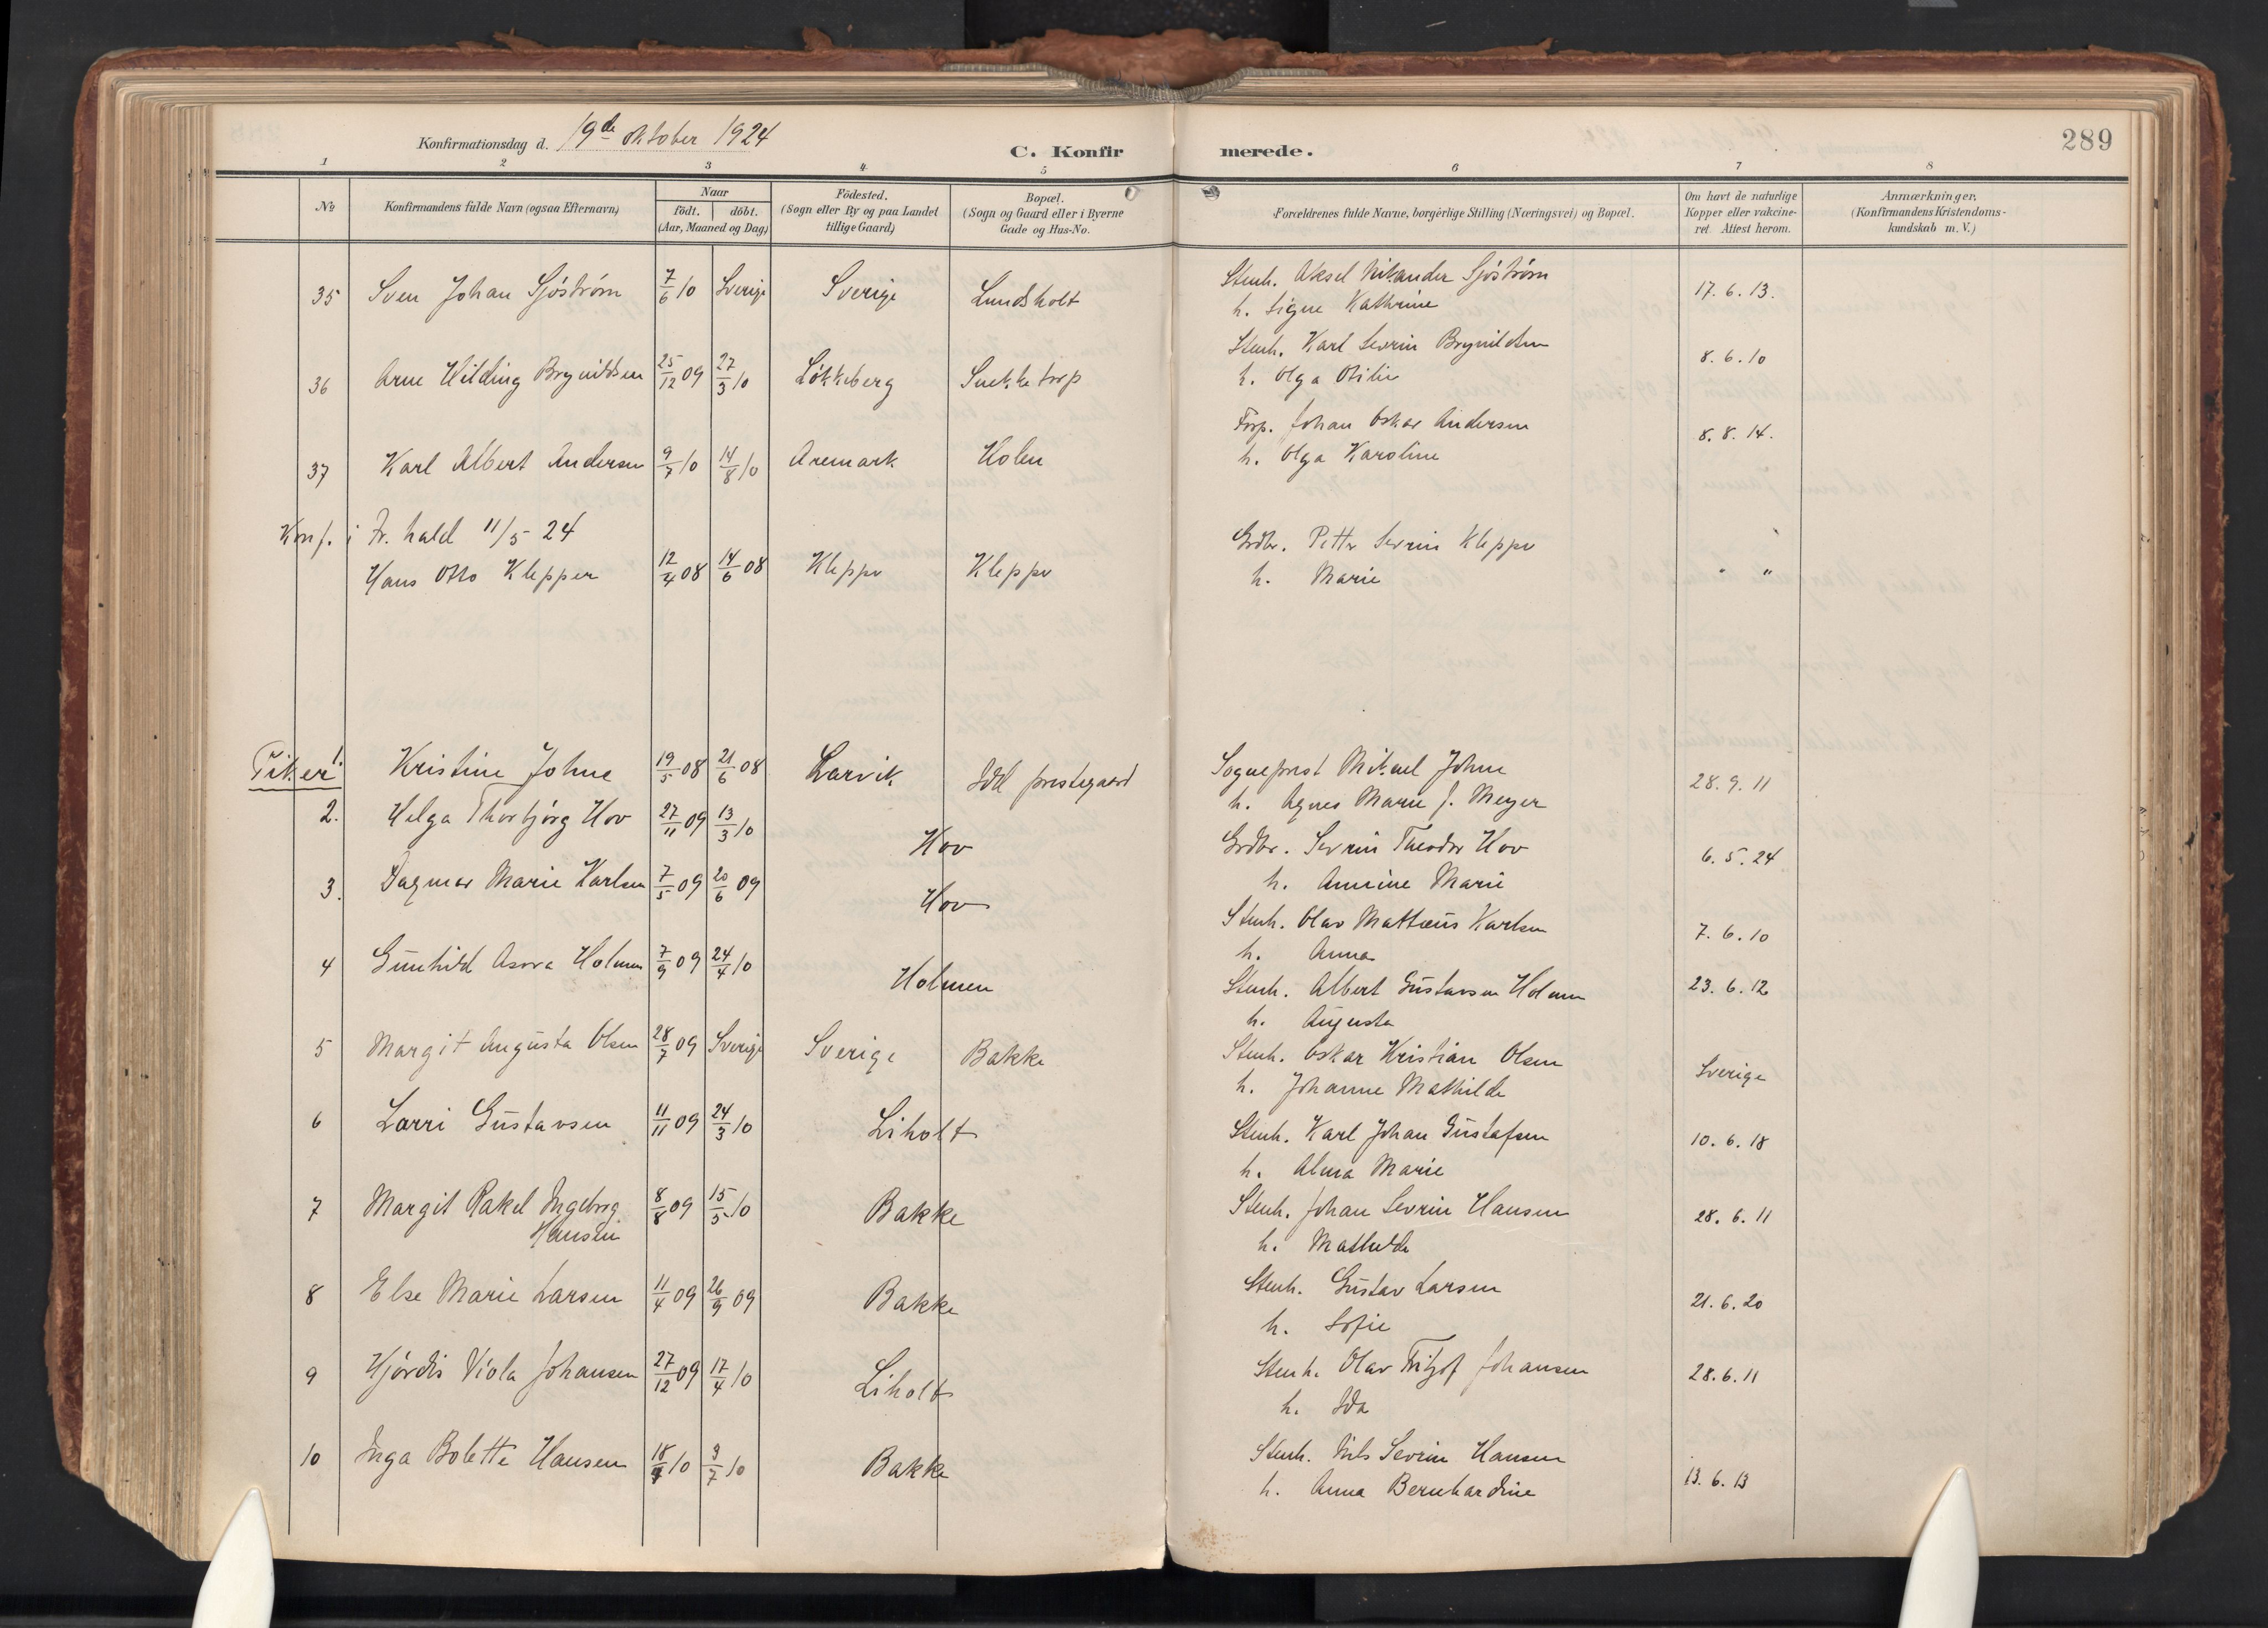 Konfirmationsdag d. 19de oktober 1924
C. Konfirmerede.
289
1 2 3 4 5 6 7 8
No
Konfirmandens fulde Navn (ogsaa Efternavn)
Naar
födt. döbt.
(Aar, Maaned og Dag)
Födested.
(Sogn eller By og paa Landet
tillige Gaard)
Bopæl.
(Sogn og Gaard eller i Byerne
Gade og Hus-No.
Forældrenes fulde Navne, borgerlige Stilling (Næringsvei) og Bopæl.
Om havt de naturlige
Kopper eller vakcine-
ret. Attest herom.
Anmærkninger.
(Konfirmandens Kristendoms-
kundskab m. V.)
35 Sven Johan Sjöström 7/6 10 Sverige Sverige Lundsholt Stenh. Aksel Nikander Sjöström 17.6.13.
h. Signe Kathrine
36 Arne Hilding Brynildsen 25/12 09 27/3 10 Løkkeberg Snekketorp Stenh. Karl Sevrin Brynildsen 8.6.10
h. Olga Otilie
37 Karl Albert Andersen 9/7 10 14/8 10 Aremark Holen Forp. Johan Oskar Andersen 8.8.14.
h. Olga Karoline
Konf. i Fr. hald 11/5 24
Hans Otto Klepper 12/4 08 14/6 08 Kleppe Kleppe Grdbr. Petter Sevrin Kleppe " "
h. Marie
Piker 1. Kristine Johne 19/5 08 21/6 08 Larvik Idd prestegaard Sogneprest Mikael Johne 28.9.11
h. Agnes Marie J. Meyer
2. Helga Thorbjörg Hov 27/11 09 13/3 10 Hov Grdbr. Sevrin Theodor Hov 6.5.24
h. Annine Marie
3. Dagmar Marie Karlsen 7/5 09 20/6 09 Hov Stenh. Olav Mattæus Karlsen 7.6.10
h. Anna
4 Gunhild Asora Holmen 7/9 09 24/4 10 Holmen Stenh. Albert Gustavsen Holmen 23.6.12
h. Augusta
5 Margit Augusta Olsen 28/7 09 Sverige Sverige Bakke Stenh. Oskar Kristian Olsen Sverige
h. Johanne Mathilde
6 Lorri Gustavsen 11/11 09 24/3 10 Liholt Stenh. Karl Johan Gustafsen 10.6.18
h. Alma Marie
7 Margit Rakel Ingeborg
Hansen 8/8 09 15/5 10 Bakke Stenh. Johan Sevrin Hansen 28.6.11
h. Mathilde
8 Else Marie Larsen 11/4 09 26/9 09 Bakke Stenh. Gustav Larsen 21.6.20
h. Sofie
9 Hjördis Viola Johansen 27/12 09 17/4 10 Liholt Stenh. Olav Fritjof Johansen 28.6.11
h. Ida
10 Inga Bolette Hansen 18/4 10 3/7 10 Bakke Stenh. Nils Sevrin Hansen 13.6.13
h. Anna Bernhardine